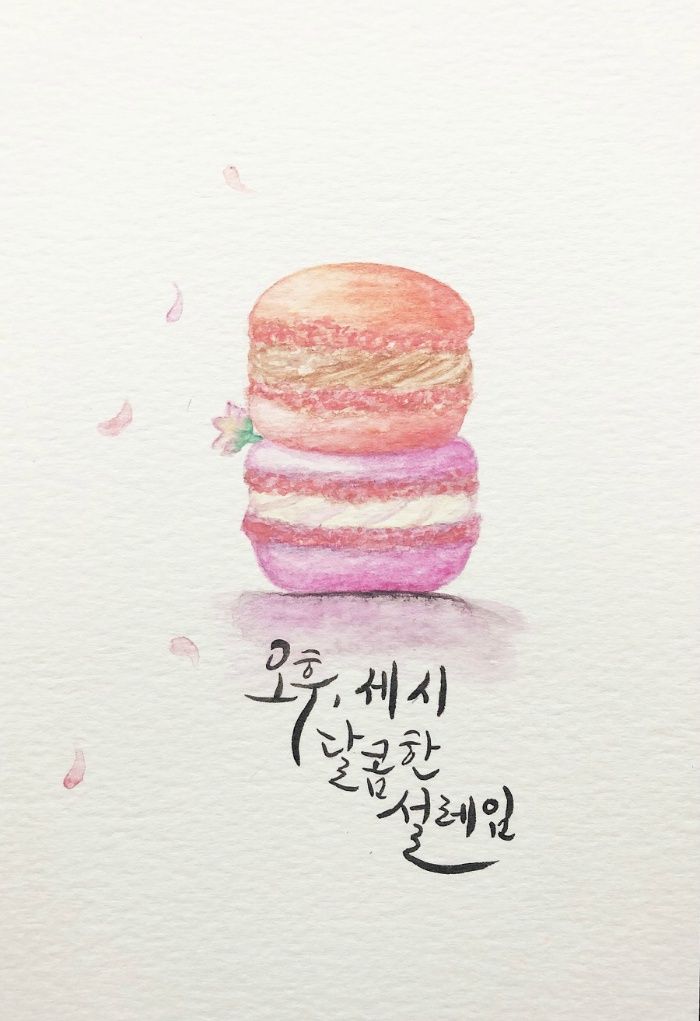 오후, 세시
달콤한
설레임